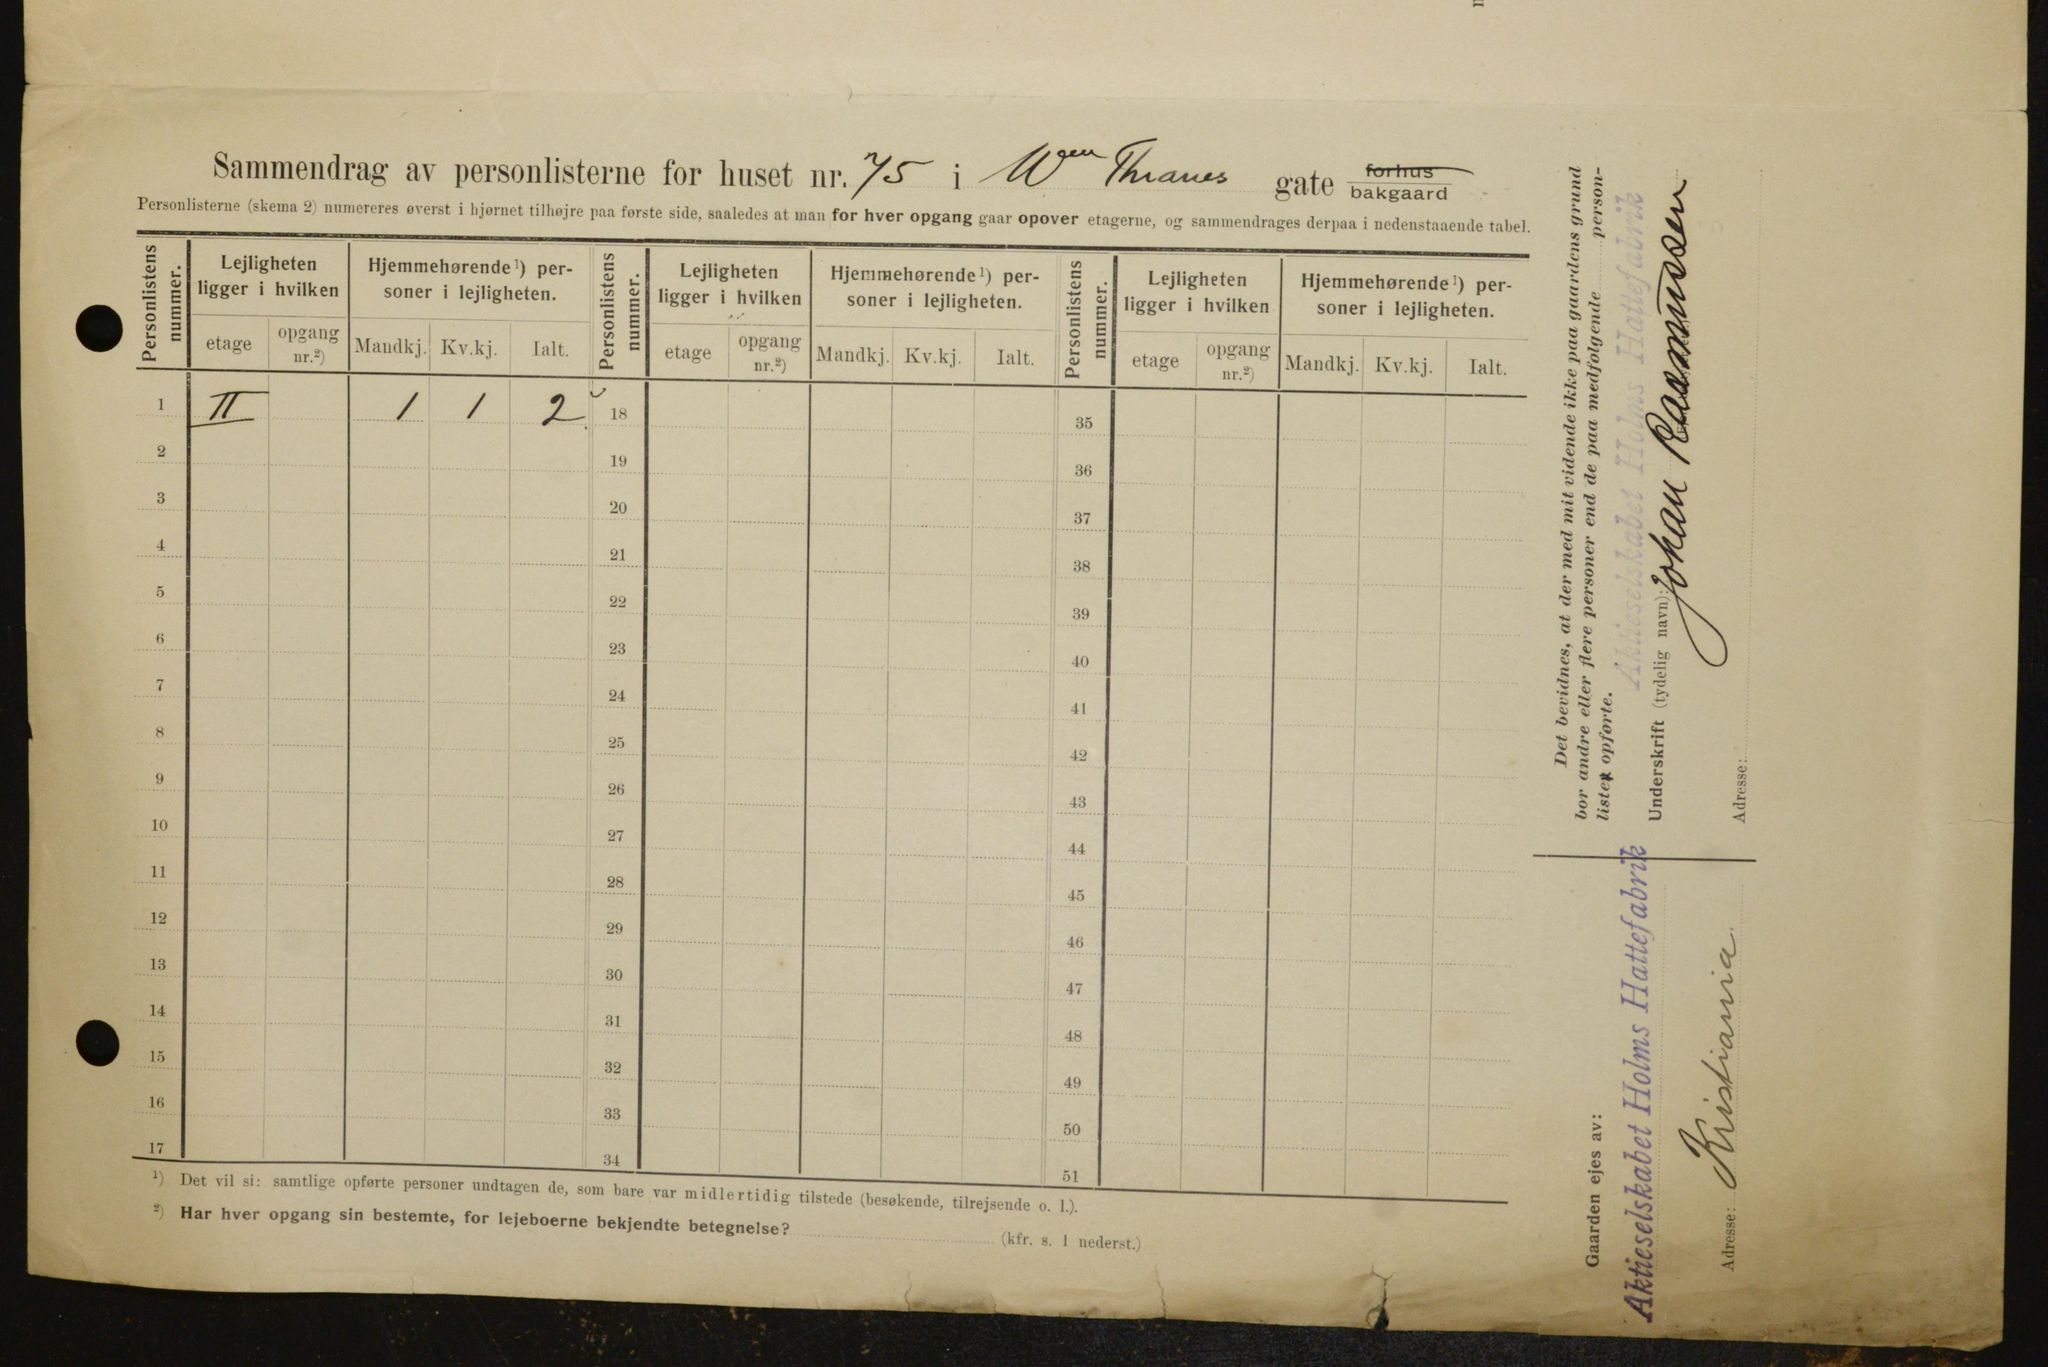 Sammendrag av personlisterne for huset nr. 75 i Wm Thranes gate forhus bakgaard
Personlisterne (skema 2) numereres øverst i hjørnet tilhøjre paa første side, saaledes at man for hver opgang gaar opover etagerne, og sammendrages derpaa i nedenstaaende tabel.
Personlistens nummer. Lejligheten ligger i hvilken Hjemmehørende 1) personer i lejligheten. Personlistens nummer. Lejligheten ligger i hvilken Hjemmehørende 1) personer i lejligheten. Personlistens nummer. Lejligheten ligger i hvilken Hjemmehørende 1) personer i lejligheten.
etage opgang nr.2) Mandkj. Kv.kj. Ialt. etage opgang nr.2) Mandkj. Kv.kj. Ialt. etage opgang nr.2) Mandkj. Kv.kj. Ialt.
1 II 1 1 2 18 35
2 19 36
3 20 37
4 21 38
5 22 39
6 23 40
7 24 41
8 25 42
9 26 43
10 27 44
11 28 45
12 29 46
13 30 47
14 31 48
15 32 49
16 33 50
17 34 51
1) Det vil si: samtlige opførte personer undtagen de, som bare var midlertidig tilstede (besøkende, tilrejsende o. l.).
2) Har hver opgang sin bestemte, for lejeboerne bekjendte betegnelse? (kfr. s. 1 nederst.)
Det bevidnes, at der med mit vidende ikke paa gaardens grund
bor andre eller flere personer end de paa medfølgende personlister opførte.
Aktieselskabet Holms Hattefabrik
Underskrift (tydelig navn): Johan Rasmussen
Adresse:
Gaarden ejes av:
Aktieselskabet Holms Hattefabrik
Adresse: Kristiania.